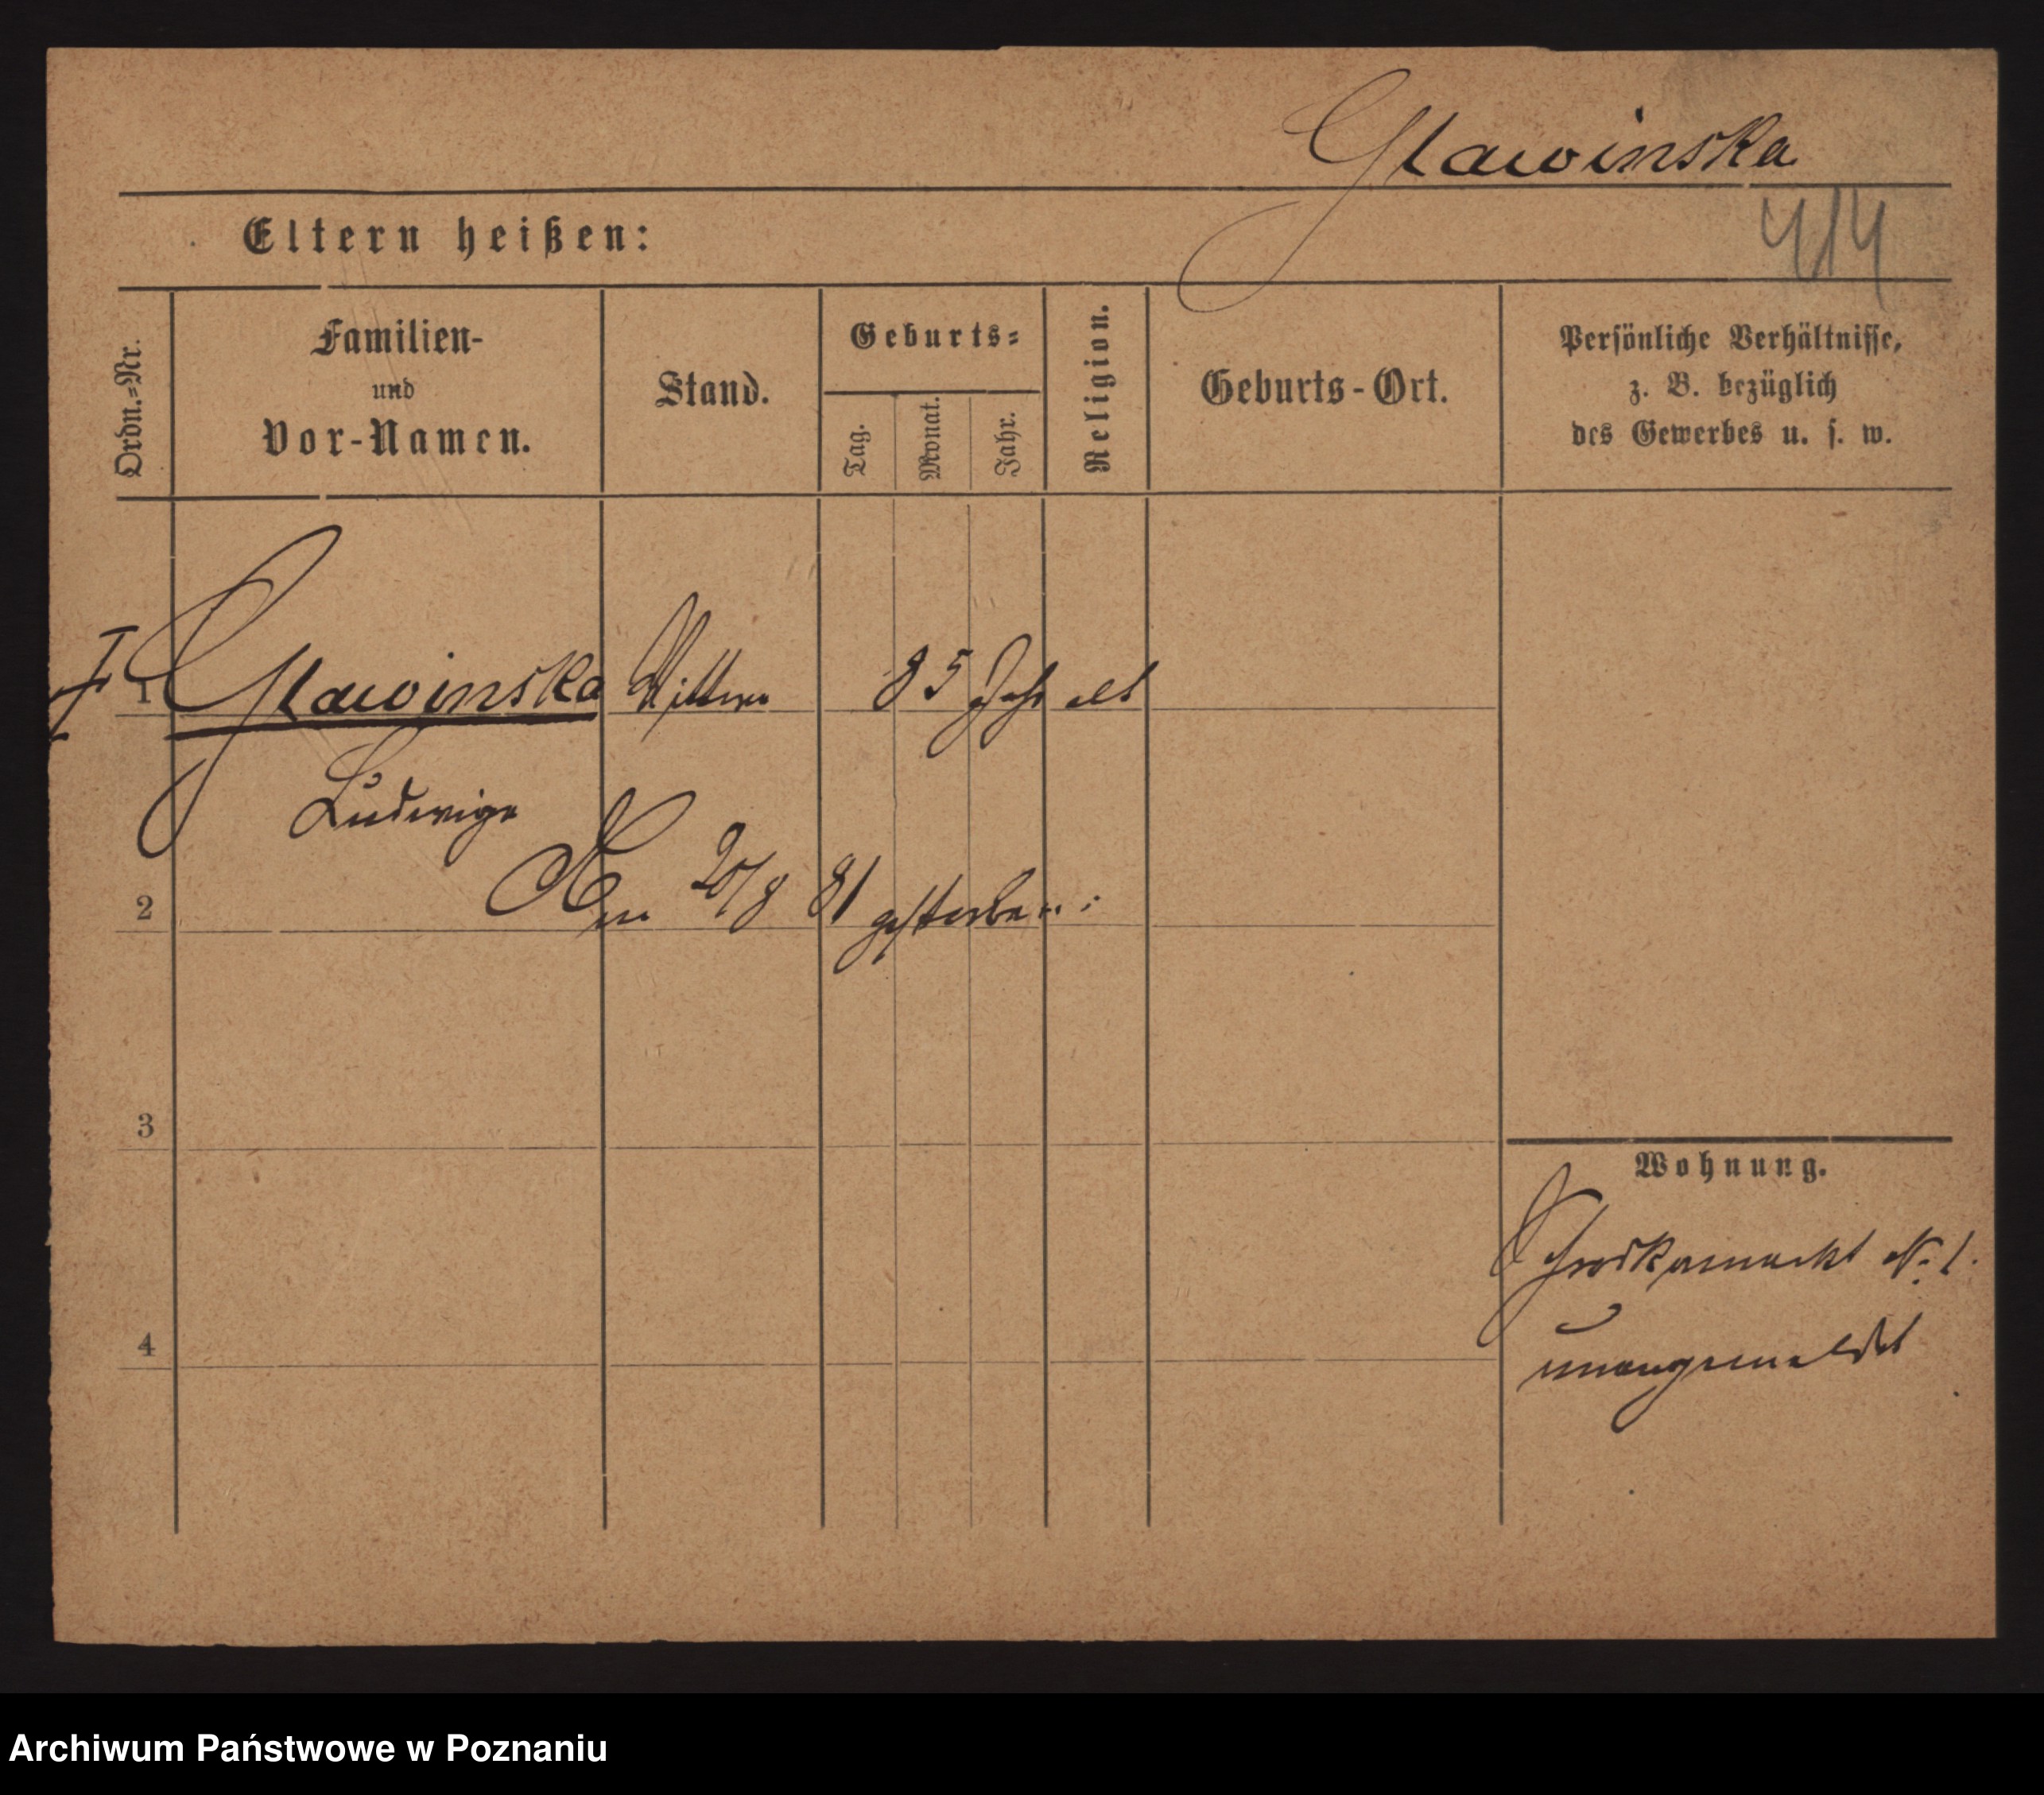 Glawinska
414
Eltern heißen:
Ordn.=Nr.
Familien-
und
Vor-Namen.
Stand.
Geburts=
Tag.
Monat.
Jahr.
Religion.
Geburts-Ort.
Persönliche Verhältnisse,
z. B. bezüglich
des Gewerbes u. s. w.
1 Glawinska Wittwe 85 Jahr alt
Ludwiga
2 Am 20/8 81 gestorben.
3
Wohnung.
Schrodkamarkt No. 1.
4
unangemeldet
Archiwum Państwowe w Poznaniu